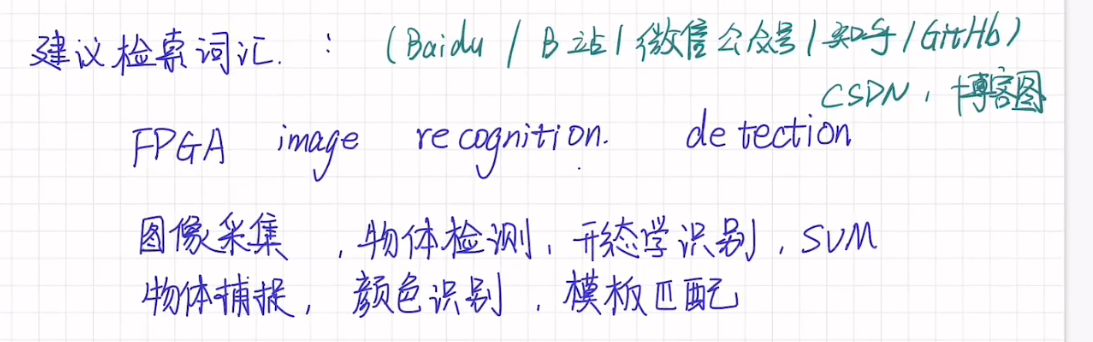 建议检索词汇. : (Baidu / B站 / 微信公众号 / 知乎 / GitHb)
CSDN, 博客园
FPGA image recognition. detection
图像采集 , 物体检测, 形态学识别, SVM
物体捕捉, 颜色识别, 模板匹配